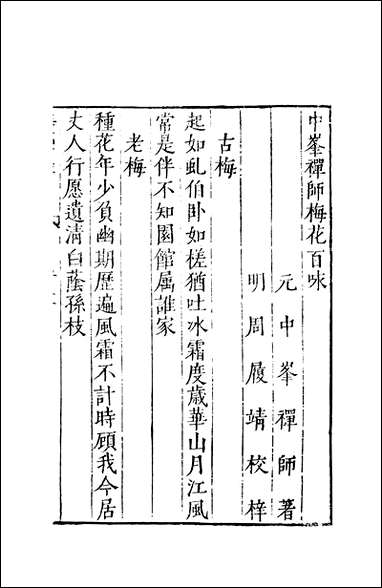 中峯禪師梅花百咏
元中峯禪師著
明周履靖校梓
古梅
起如虬伯卧如槎猶吐冰霜度歲華山月江風
常是伴不知園館属誰家
老梅
種花年少負幽期歷遍風霜不計時顧我今居
丈人行愿遺清白蔭孫枝